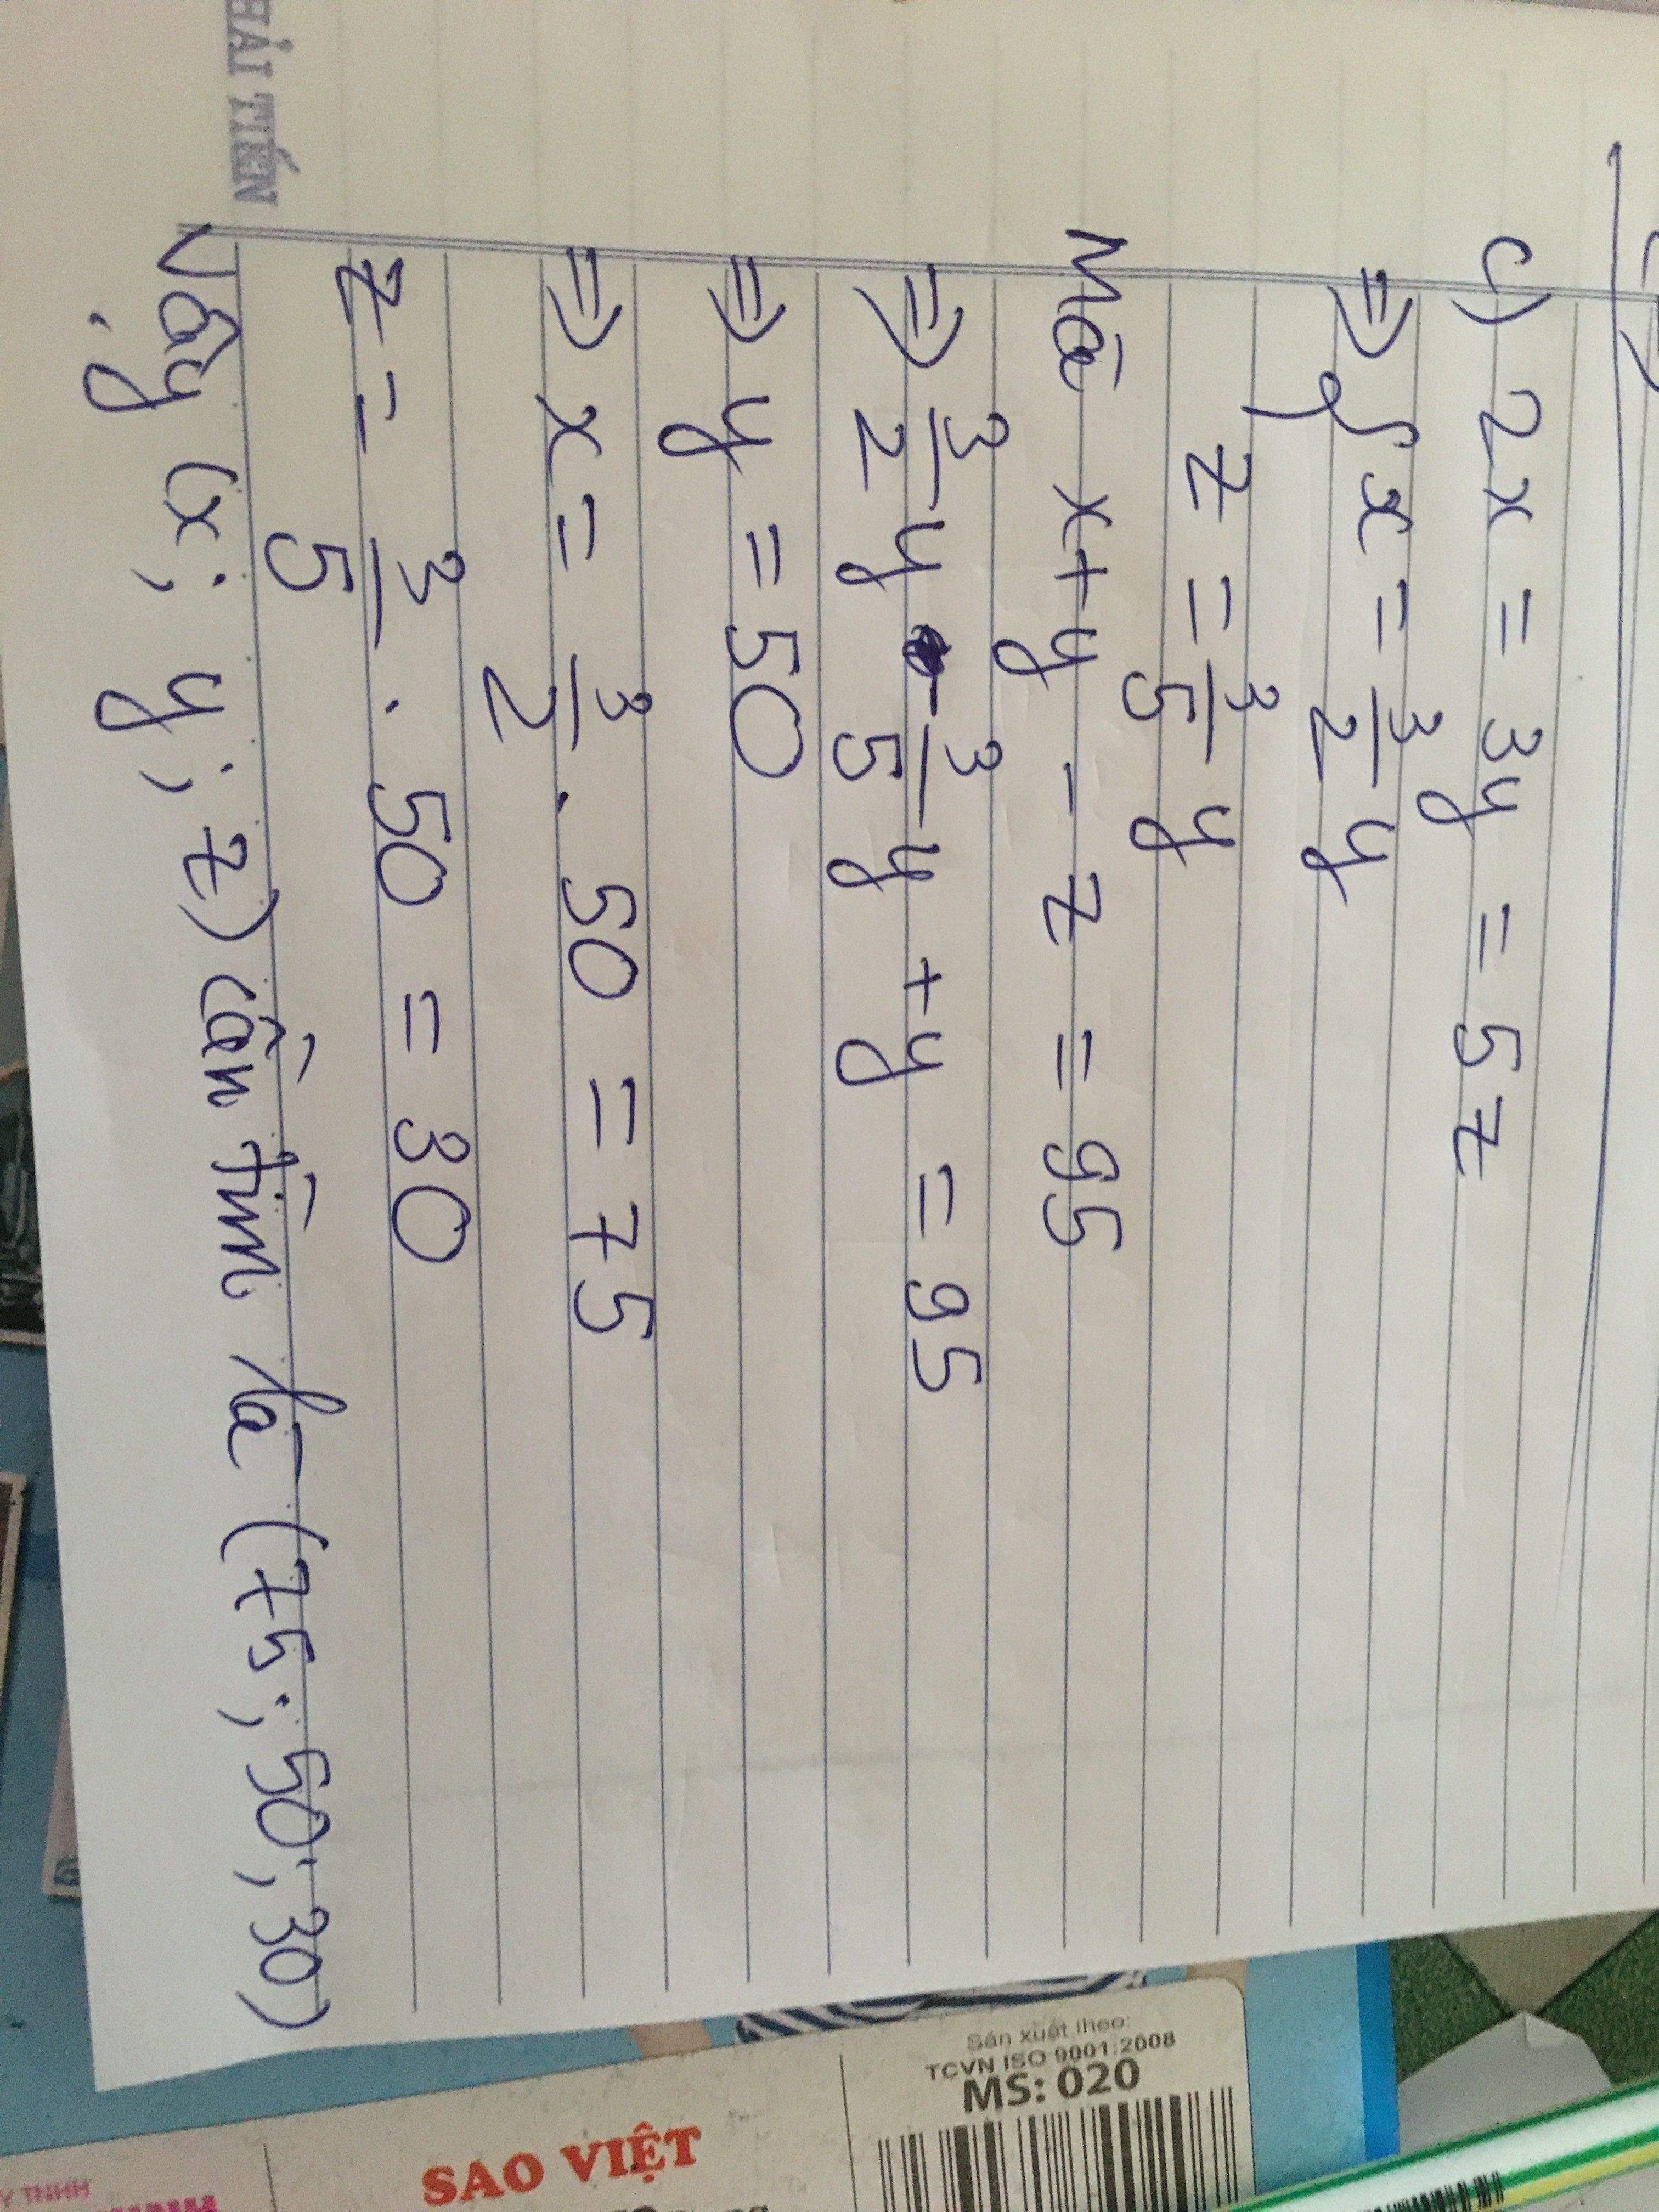 c) 2x = 3y = 5z
⇒ { x = 3/2 y
z = 3/5 y
Mà x + y - z = 95
⇒ 3/2 y - 3/5 y + y = 95
⇒ y = 50
⇒ x = 3/2 . 50 = 75
z = 3/5 . 50 = 30
Vậy (x; y; z) cần tìm là (75; 50; 30)
HẢI TIẾN
Sản xuất theo:
TCVN ISO 9001:2008
MS: 020
SAO VIỆT
Y TNHH